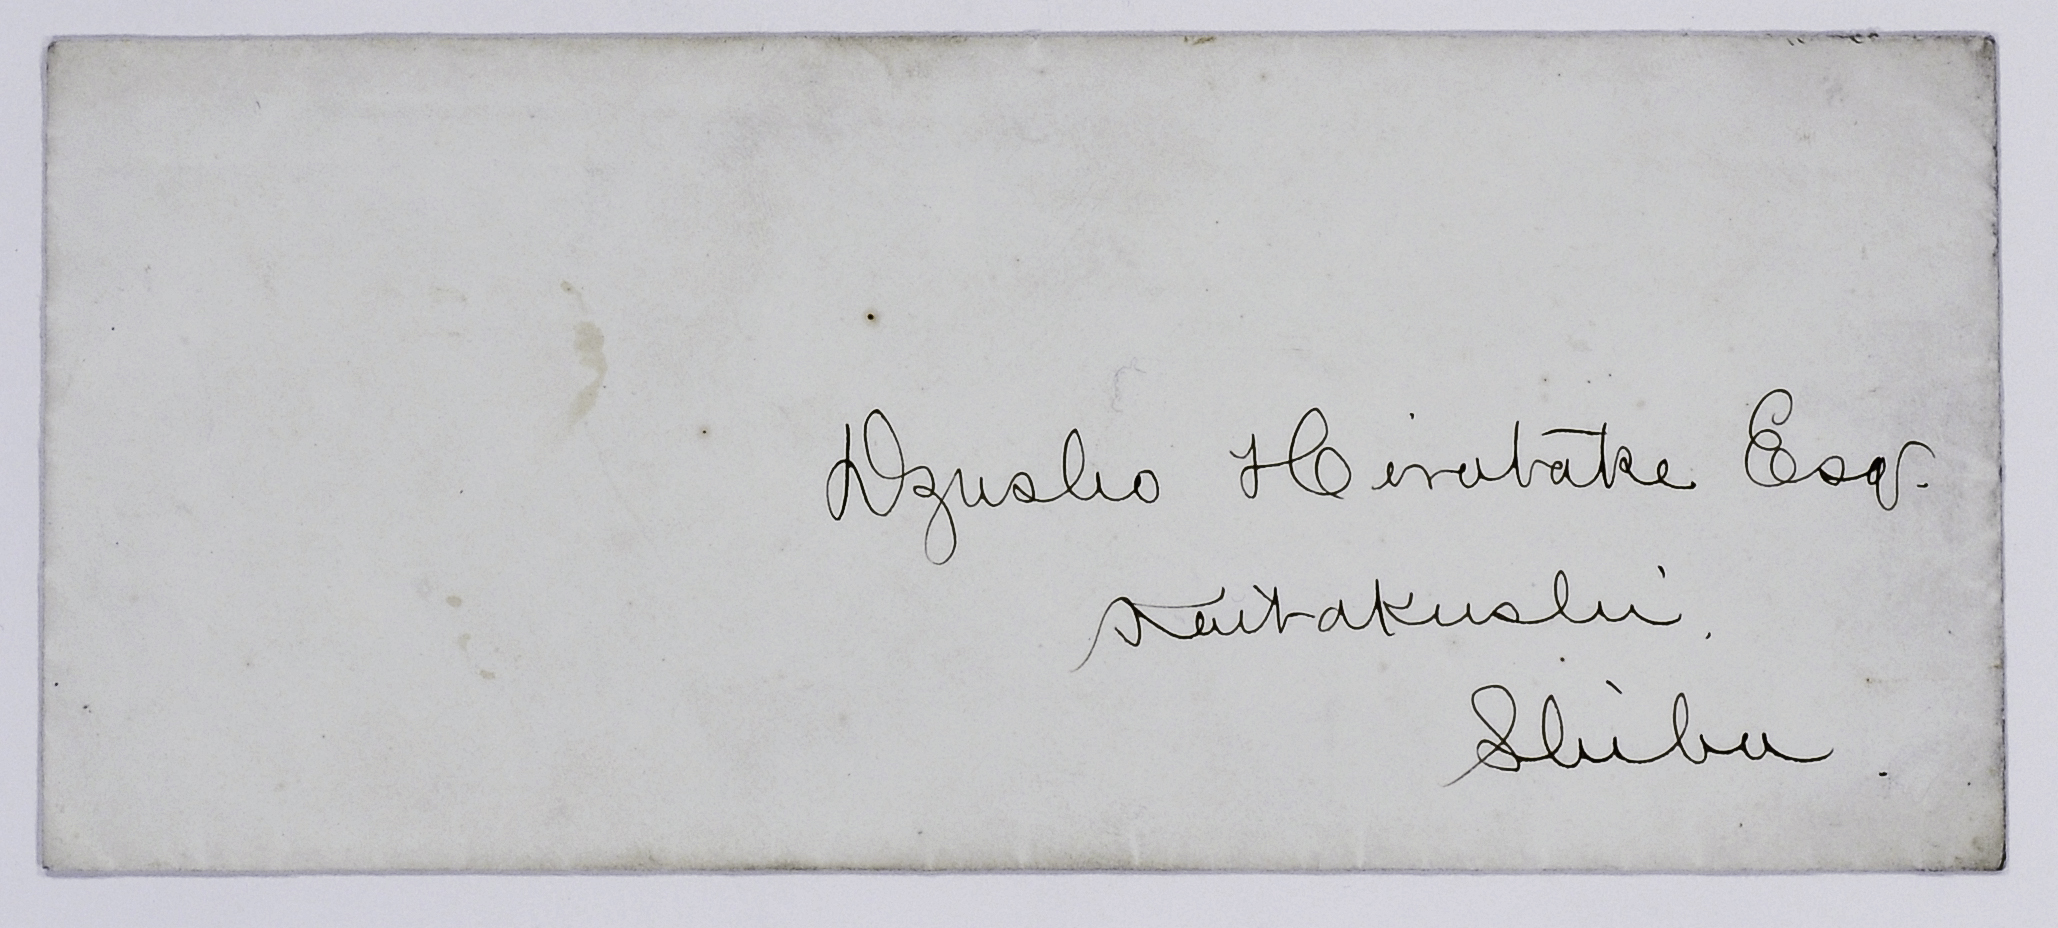 Dzusho Hirotake Esq.
Kaitakushi.
Shiba.